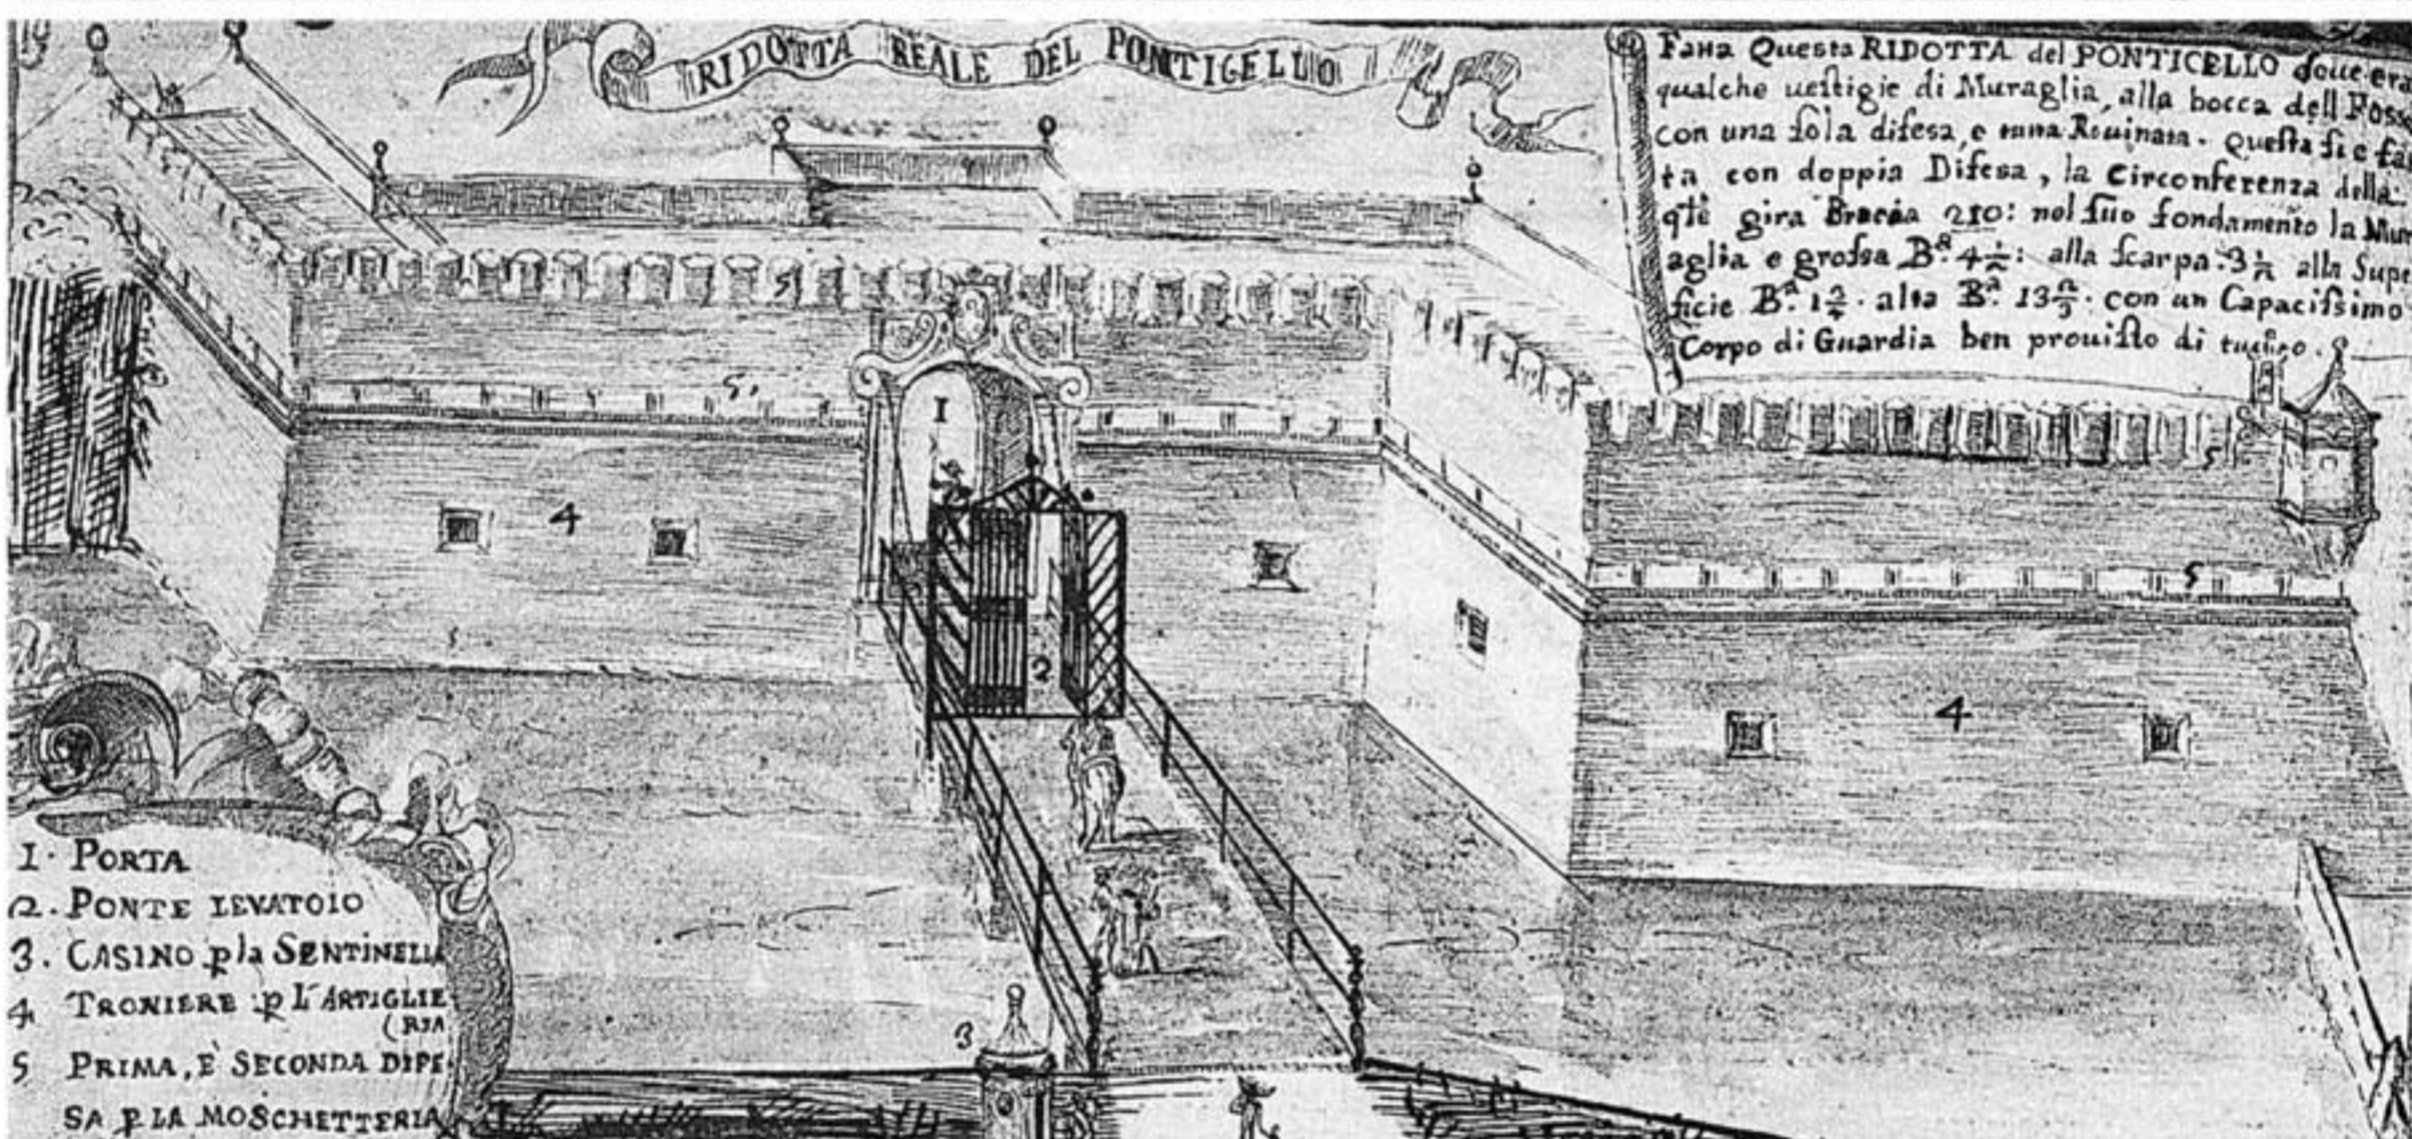 RIDOTTA REALE DEL PONTICELLO
Fatta Questa RIDOTTA del PONTICELLO doue era
qualche uestigie di Muraglia, alla bocca dell Foss
con una sola difesa, e tutta Rouinata. questa si e fat
ta con doppia Difesa, la Circonferenza della
qle gira Braccia 210: nel suo fondamento la Mur
aglia e grossa B.a 4 1/2: alla scarpa: 3 1/2 alla Supe
ficie B.a alta B.a 13 2/3. con un Capacissimo
Corpo di Guardia ben prouisto di tutto.
1
2
3
4
4
5
5
5
5
1. PORTA
2. PONTE LEVATOIO
3. CASINO p la SENTINELLA
4 TRONIERE p L'ARTIGLIE
(RIA
5 PRIMA, È SECONDA DIFE
SA P LA MOSCHETTERIA